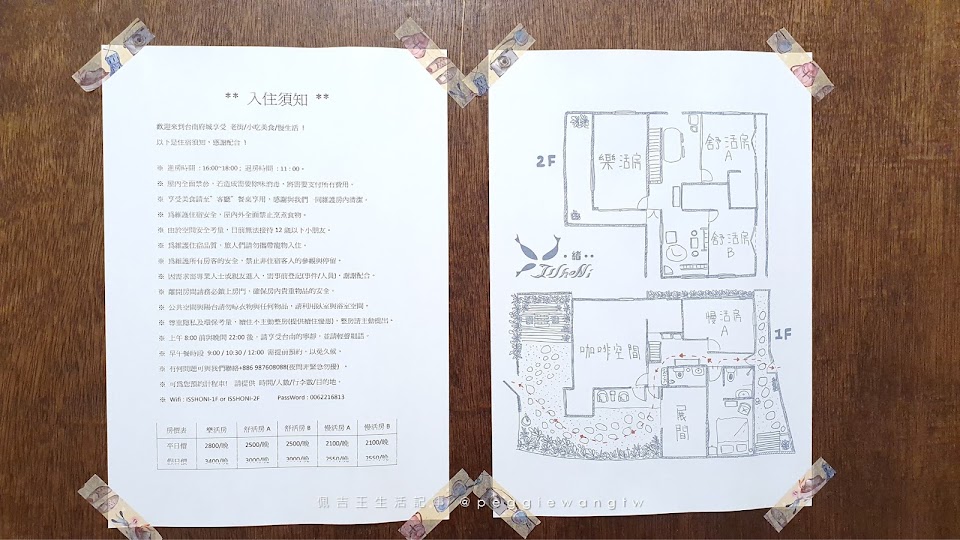 ** 入住須知 **
歡迎來到台南府城享受 老街/小吃美食/慢生活！
以下是住宿須知，感謝配合！
※ 進房時間：16:00~18:00； 退房時間：11：00。
※ 屋內全面禁菸，若造成需要除味清潔，將需要支付所有費用。
※ 享受美食請至"客廳"餐桌享用，感謝與我們 一同維護房內清潔。
※ 為維護住宿安全，屋內外全面禁止烹煮食物。
※ 由於空間安全考量，目前無法接待 12 歲以下小朋友。
※ 為維護住宿品質，旅人們請勿攜帶寵物入住。
※ 為維護所有房客的安全，禁止非住宿客人的參觀與停留。
※ 因需求需專業人士或親友進入，需事前登記(事件/人員)，謝謝配合。
※ 離開房間請務必鎖上房門，確保房內貴重物品的安全。
※ 公共空間與陽台請勿晾衣物與任何物品，請利用臥室與浴室空間。
※ 尊重隱私及環保考量，續住不主動整房(提供續住優惠)，整房請主動提出。
※ 上午 8:00 前與晚間 22:00 後，請享受台南的寧靜，並請輕聲細語。
※ 早午餐時段 9:00 / 10:30 / 12:00 需提前預約，以免久候。
※ 有任何問題可與我們聯絡+886 987608088(夜間非緊急勿擾)。
※ 可為您預約計程車! 請提供 時間/人數/行李數/目的地。
※ Wifi : ISSHONI-1F or ISSHONI-2F PassWord : 0062216813
房價表 樂活房 舒活房 A 舒活房 B 慢活房 A 慢活房 B
平日價 2800/晚 2500/晚 2500/晚 2100/晚 2100/晚
假日價 3400/晚 3000/晚 3000/晚 2550/晚 2550/晚
2F
樂活房
舒活房 A
舒活房 B
1F
咖啡空間
慢活房 A
展間
佩吉王生活記 @peggiewangtw